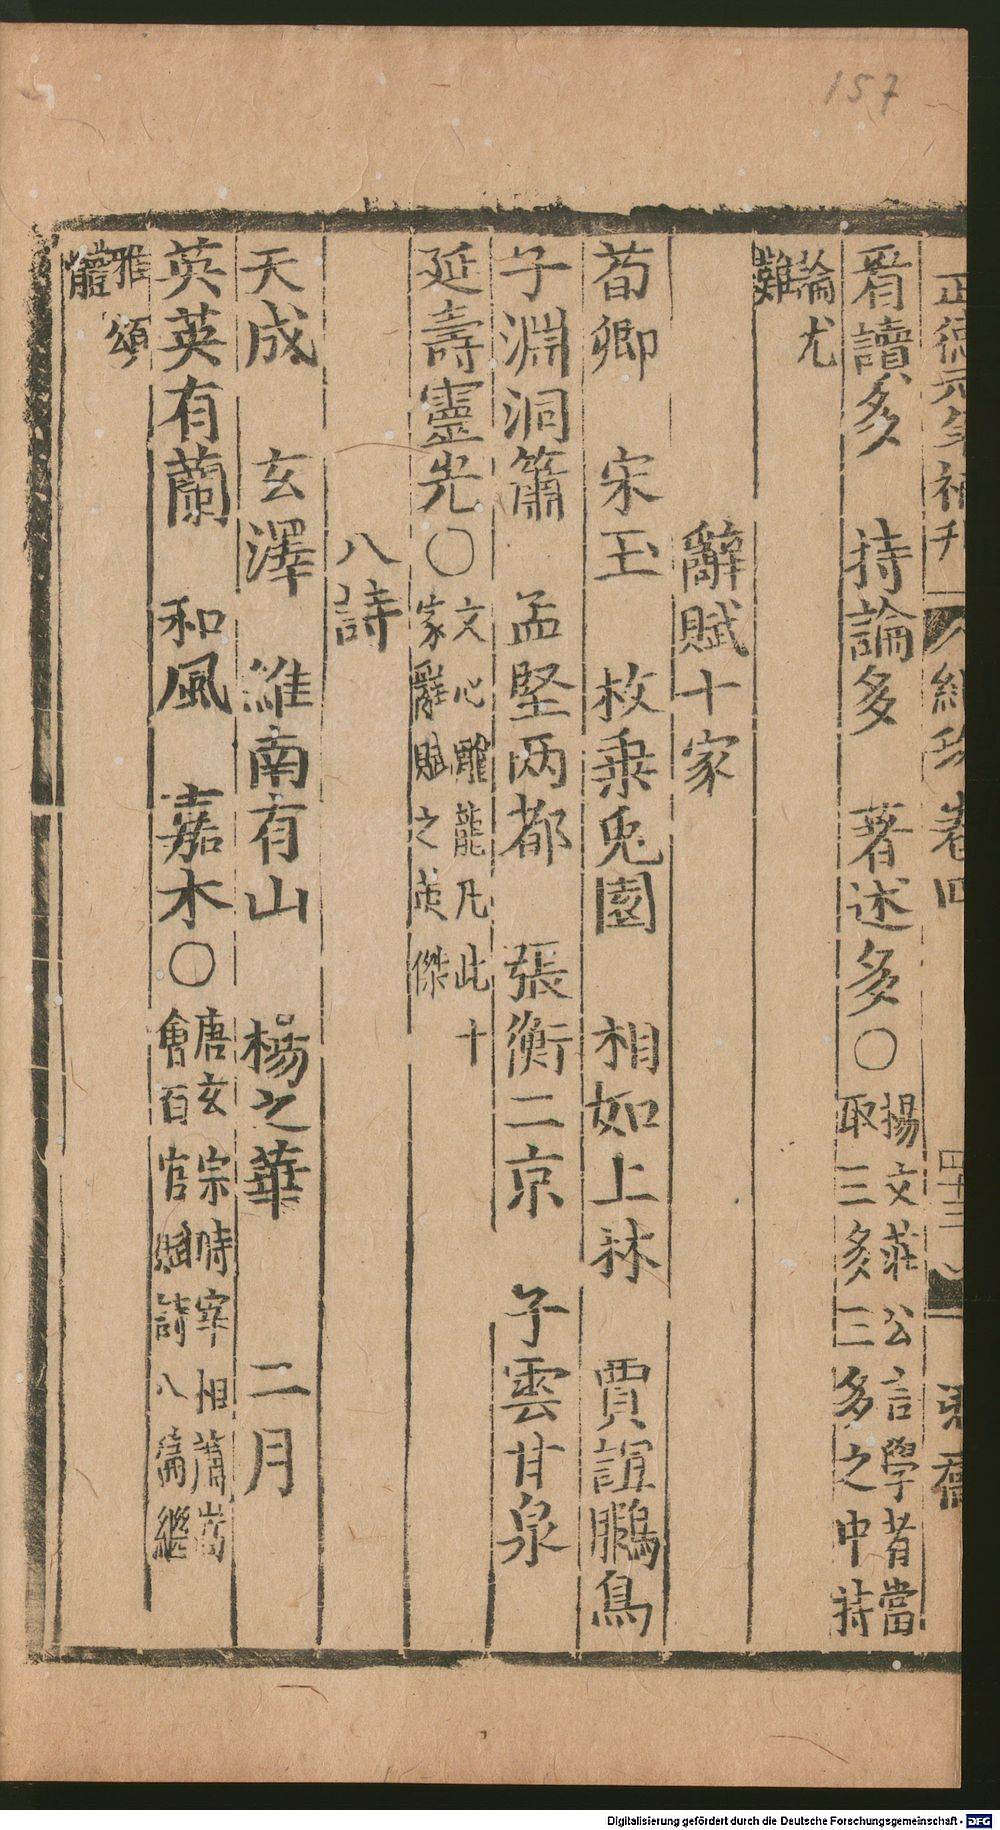 157
正德元年補刊
卷四
四十三
看讀多　持論多　著述多〇楊文莊公言學者當取三多三多之中持
論尤難
辭賦十家
荀卿　宋玉　枚乗兎園　相如上林　賈誼鵩鳥
子淵洞簫　孟堅两都　張衡二京　子雲甘泉
延壽靈光〇文心雕龍凡此十家辭賦之英傑
八詩
天成　玄澤　維南有山　楊之華　二月
英英有蘭　和風　嘉木〇唐玄宗時宰相蕭嵩會百官賦詩八篇繼
雅頌體
Digitalisierung gefördert durch die Deutsche Forschungsgemeinschaft - DFG